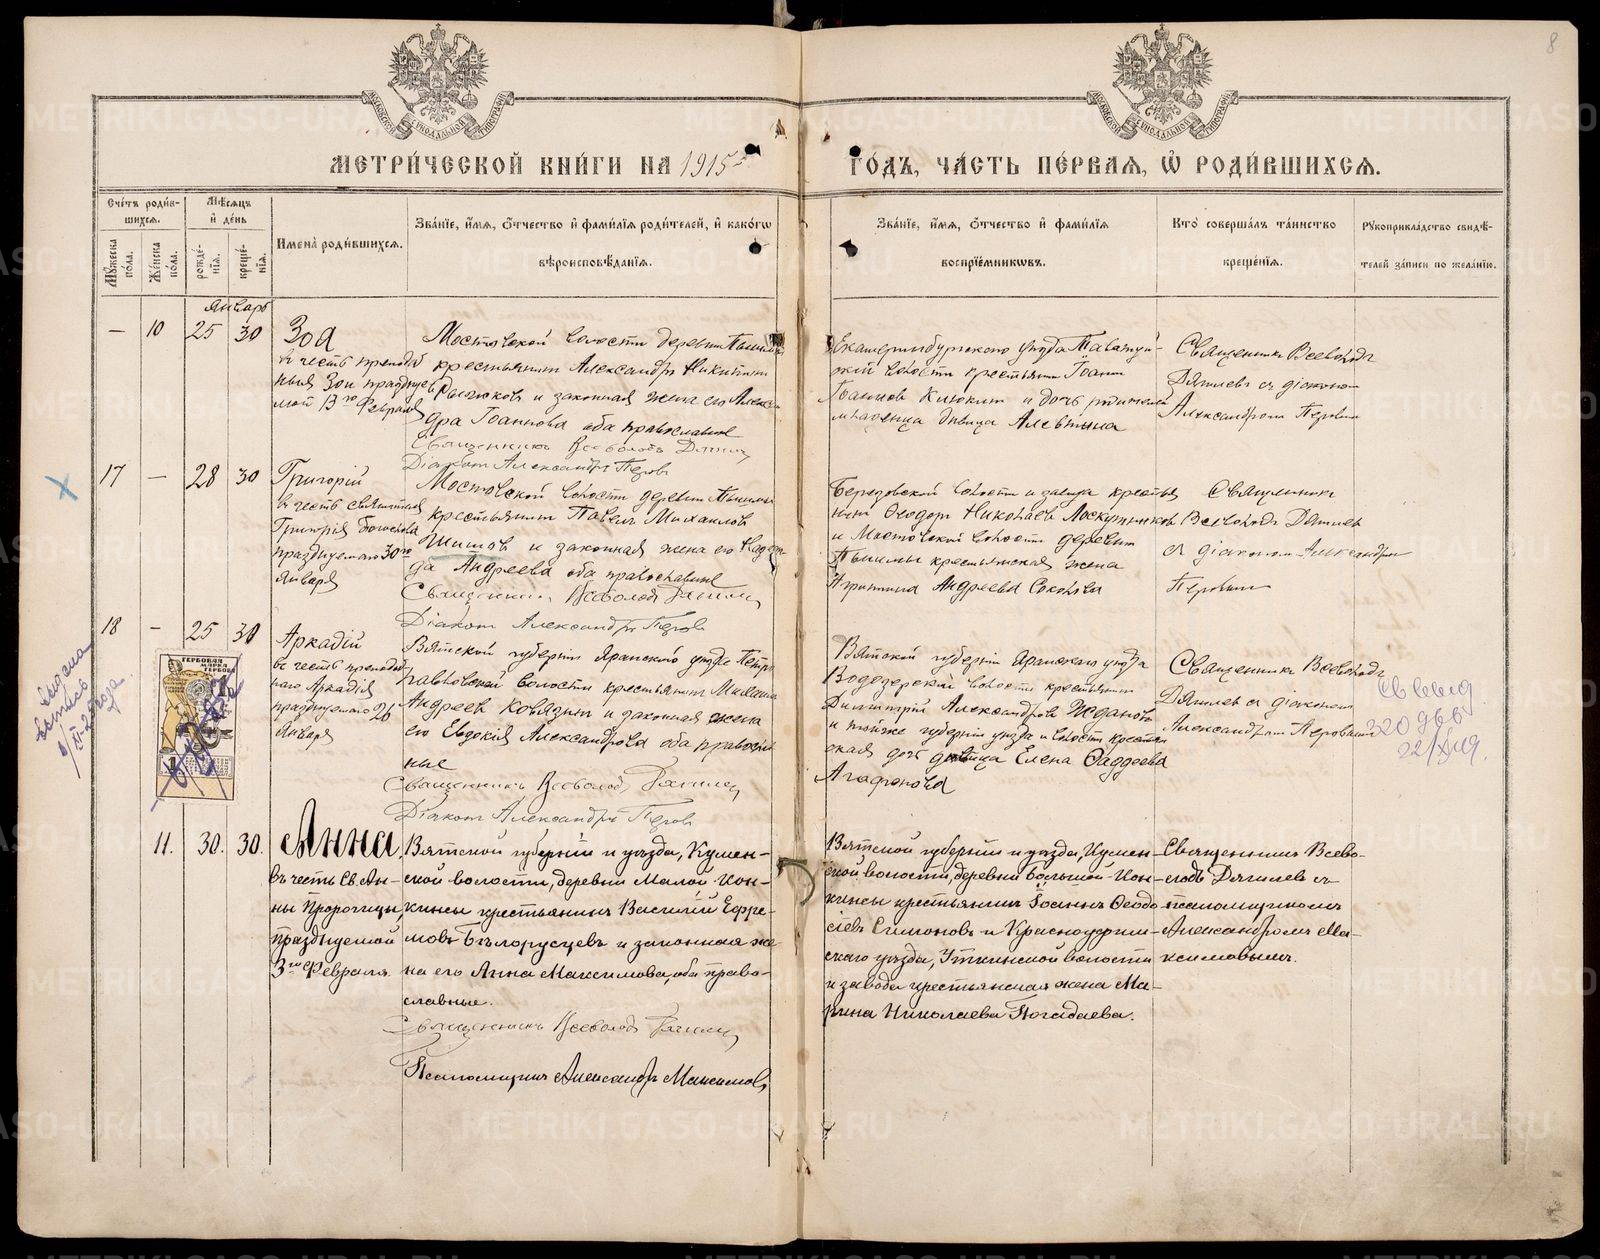 8
МЕТРИ́ЧЕСКОЙ КНИ́ГИ НА 1915 ГО́ДЪ, ЧА́СТЬ ПЕ́РВАѦ, Ѡ҆ РОДИ́ВШИХСѦ.
Сче́тъ роди́в-
шихсѧ.
Мꙋ́жеска по́ла.
Же́нска по́ла.
Мѣ́сѧцъ
и҆ де́нь
рожде́-
нїѧ.
креще́-
нїѧ.
И҆мена̀ роди́вшихсѧ.
Зва́нїе, и҆́мѧ, о҆́тчество и҆ фами́лїѧ роди́телей, и҆ како́гѡ
вѣроисповѣ́данїѧ.
Зва́нїе, и҆́мѧ, о҆́тчество и҆ фами́лїѧ
воспрїе́мникѡвъ.
Кто̀ соверша́лъ та́инство
креще́нїѧ.
Рꙋкоприкла́дство свидѣ́-
телей за́писи по жела́нїю.
Январь
— 10 25 30
Зоя
въ честь преподоб
ныя Зои празднуе
мой 13го Февраля
Мостовской волости деревни Пышмы
крестьянинъ Александръ Никитинъ
и законная жена его Алексан
дра Іоаннова оба православные
Священникъ Всеволодъ Дягилев
Діаконъ Александръ Перовъ
Екатеринбургскаго уѣзда Таватуй-
ской волости крестьянинъ Іоаннъ
Іоанновъ Клюкинъ и дочь родителей
младенца дѣвица Алевтина
Священникъ Всеволодъ
Дягилевъ съ діакономъ
Александромъ Перовымъ
17 — 28 30
Григорій
въ честь святителя
Григорія Богослова
празднуемаго 30го
Января
Мостовской волости деревни Пышмы
крестьянинъ Павелъ Михаиловъ
Шитовъ и законная жена его Надеж
да Андреева оба православные
Священникъ Всеволодъ Дягилев
Діаконъ Александръ Перовъ
Березовской волости и завода крестья
нинъ Ѳеодоръ Николаевъ Лоскутниковъ
и Мостовской волости деревни
Пышмы крестьянская жена
Андреева Соколова
Священникъ
Всеволодъ Дягилев
съ діакономъ Александромъ
Перовымъ
18 — 25 30
Аркадій
въ честь преподоб
наго Аркадія
празднуемаго 26
Января
Вятской губерніи Яранскаго уѣзда Петро
павловской волости крестьянинъ Михаилъ
Андреев Ковязинъ и законная жена
его Евдокія Александрова оба православ
ные
Священникъ Всеволодъ Дягилев
Діаконъ Александръ Перов
Вятской губерніи Яранскаго уѣзда
Водозерской волости крестьянинъ
Димитрій Александровъ Ждановъ
и тойже губерніи уѣзда и волости крестьян
ская дочь дѣвица Елена Ѳаддеева
Агафонова
Священникъ Всеволодъ
Дягилевъ съ діакономъ
Александромъ Перовымъ
ГЕРБОВАЯ
МАРКА
1
11. 30. 30.
Анна,
въ честь Св. Ан-
ны Пророчицы,
празднуемой
3го Февраля.
Вятской губерніи и уѣзда, Кумен-
ской волости, деревни Малой Кон-
кинсы крестьянинъ Василій Ефре-
мовъ Бѣлорусцевъ и законная же
на его Анна Максимова, оба право-
славные.
Священникъ Всеволодъ Дягилев
Псаломщикъ Александръ Максимовъ
Вятской губерніи и уѣзда, Кумен-
ской волости, деревни Большой Кон-
кинсы крестьянинъ Іоаннъ Ѳеодо
сіевъ Симоновъ и Красноуфим-
скаго уѣзда, Уткинской волости
и завода крестьянская жена Ма-
рина Николаева Погадаева.
Священникъ Всево-
лодъ Дягилевъ съ
псаломщикомъ
Александромъ Ма-
ксимовымъ.